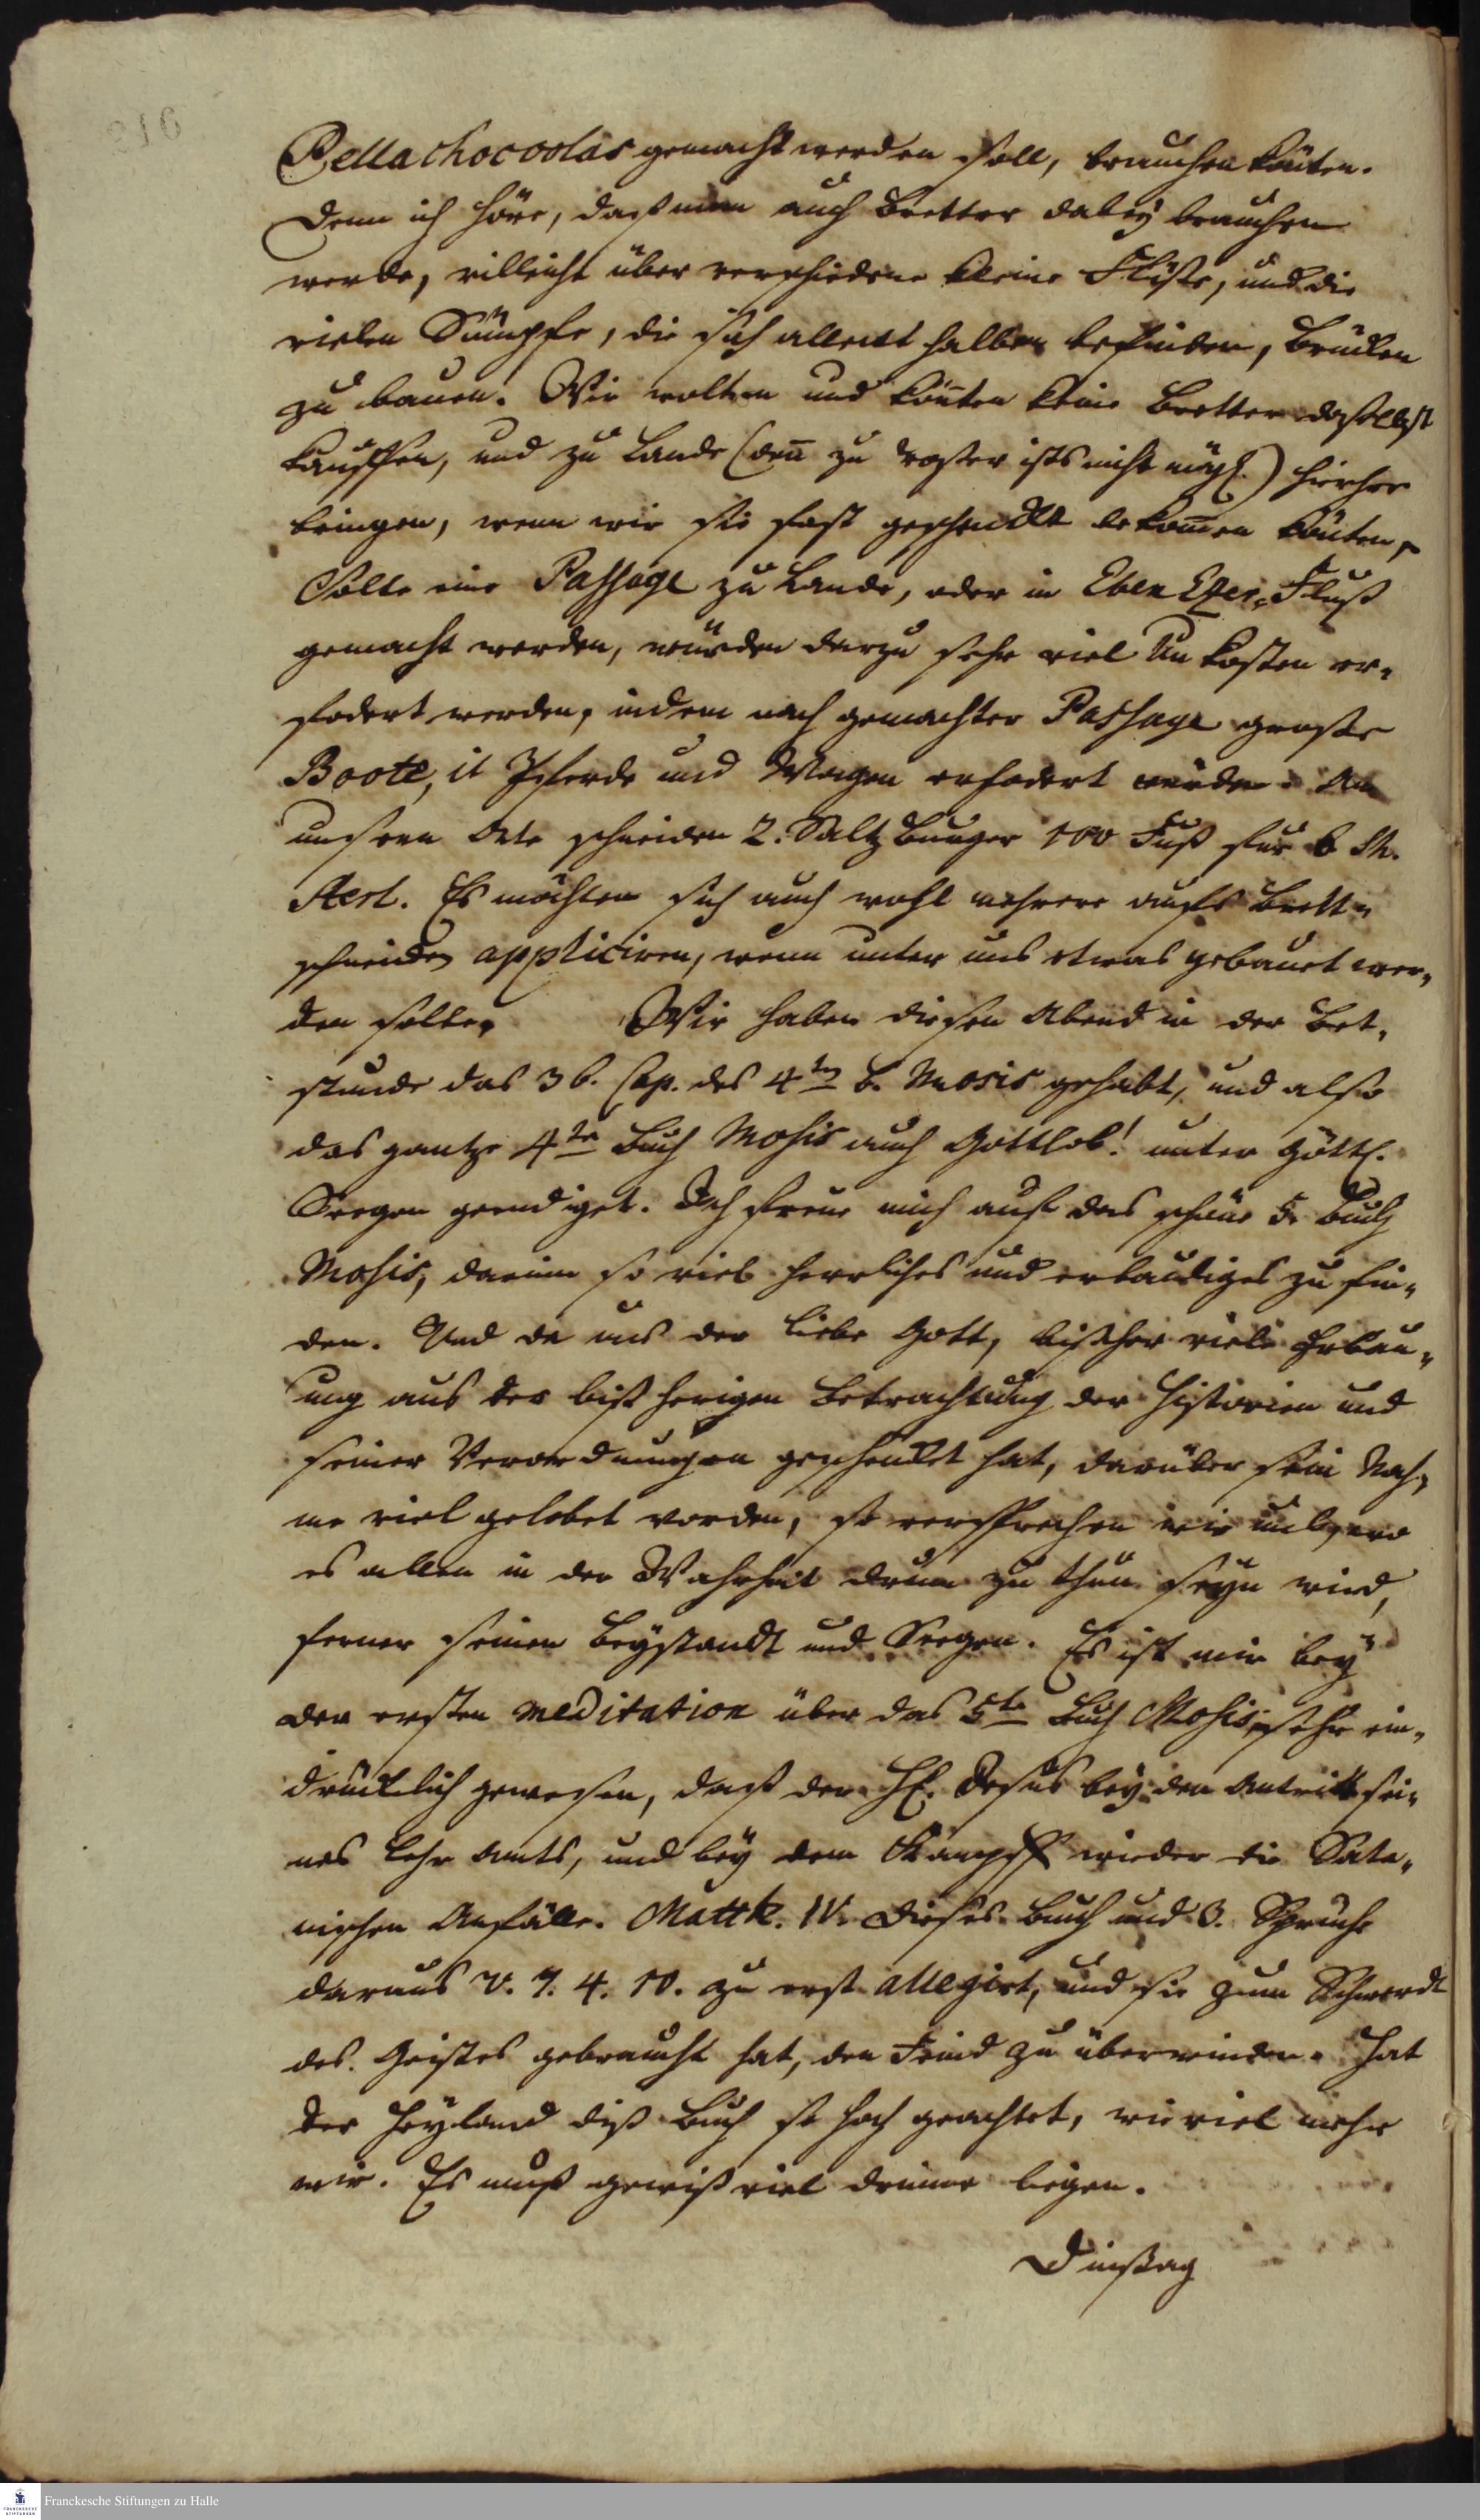 Bellachocoolas gemacht werden soll, brauchen könten.
Denn ich höre, daß man auch Bretter dabey brauchen
werde, villeicht über verschiedene kleine Flüße, und die
vielen Sümpfe, die sich allent halben befinden, Brücken
zu bauen. Wir wolten und könten keine Bretter daselbst
kauffen, und zu Lande (deñ zu Waßer ists nicht mögl.) hierher
bringen, wenn wir sie fast geschenckt bekom̄en könten,
Solte eine Passage zu Lande, oder in Eben Ezer-Fluß
gemacht werden, würden darzu sehr viel Unkosten er-
fodert werden, indem nach gemachter Passage große
Boote, it Pferde und Wagen erfodert würden. An
unserm Orte schneiden 2. Saltzburger 100 Fuß für 6 Sh.
Sterl. Es möchten sich auch wohl mehrere aufs Brett-
schneiden appliciren, wenn unter uns etwas gebauet wer-
den solte. Wir haben diesen Abend in der Bet-
stunde das 36. Cap. des 4ten B. Mosis gehabt, und also
das gantze 4te Buch Mosis auch Gottlob! unter Göttl.
Seegen geendiget. Ich freue mich auf das schöne 5. Buch
Mosis, darinn so viel herrliches und erbauliches zu fin-
den. Und da uns der liebe Gott, bißher viele Erbau-
ung aus der bißherigen Betrachtung der Historien und
seiner Verordnungen geschencket hat, darüber sein Nah-
me viel gelobet worden, so versprechen wir uns, wo
es allen in der Wahrheit drum zu thun seyn wird,
ferner seinen Beystandt und Seegen. Es ist mir bey
der ersten meditation über das 5te Buch Mosis sehr ein-
drücklich gewesen, daß der H. Jesus bey dem Antritt sei-
nes Lehr Amts, und bey dem Kampff wieder die Sata-
nischen Anfälle. Matth. IV. dieses Buch und 3. Sprüche
daraus v. 7. 4. 10. zu erst allegirt, und sie zum Schwerdt
des Geistes gebraucht hat, den Feind zu überwinden. Hat
der Heyland diß Buch so hoch geachtet, wie viel mehr
wir. Es muß gewiß viel drinne liegen.
Dinstag
Franckesche Stiftungen zu Halle